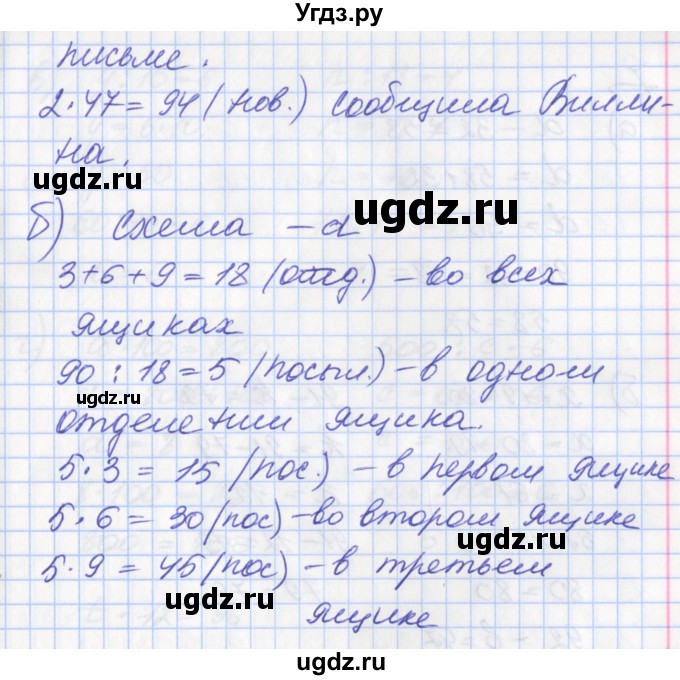 Угдз.ру
письме.
2·47=94 (нов.) сообщила Вилли-
на.
ugdz.ru
ugdz.ru
б) схема – d
3+6+9=18 (отд.) – во всех
ящиках
90:18=5 (посыл.) – в одном
ugdz.ru
отделении ящика.
5·3=15 (пос.) – в первом ящике
ugdz.ru
5·6=30 (пос) – во втором ящике
ugdz.ru
5·9=45 (пос) – в третьем
ugdz.ru
ящике
ugdz.ru